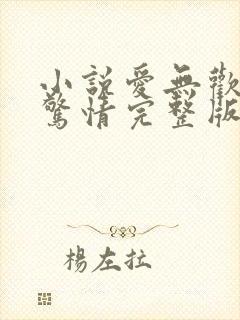 小說愛無歡
驚情完整版
楊左拉